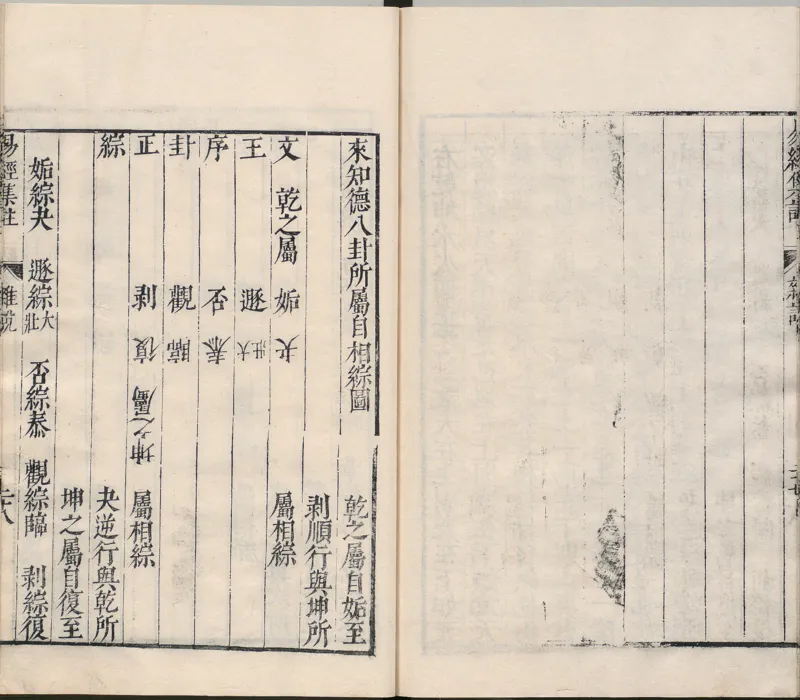 來知德八卦所屬自相綜圖 乾之屬自姤至
剝順行與坤所
文 乾之屬 姤 夬 屬相綜
王 遯 大壯
序 否 泰
卦 觀 臨
正 剝 復 坤之屬 屬相綜
綜 夬逆行與乾所
坤之屬自復至
姤綜夬 遯綜大壯 否綜泰 觀綜臨 剝綜復
易經集註 雜說